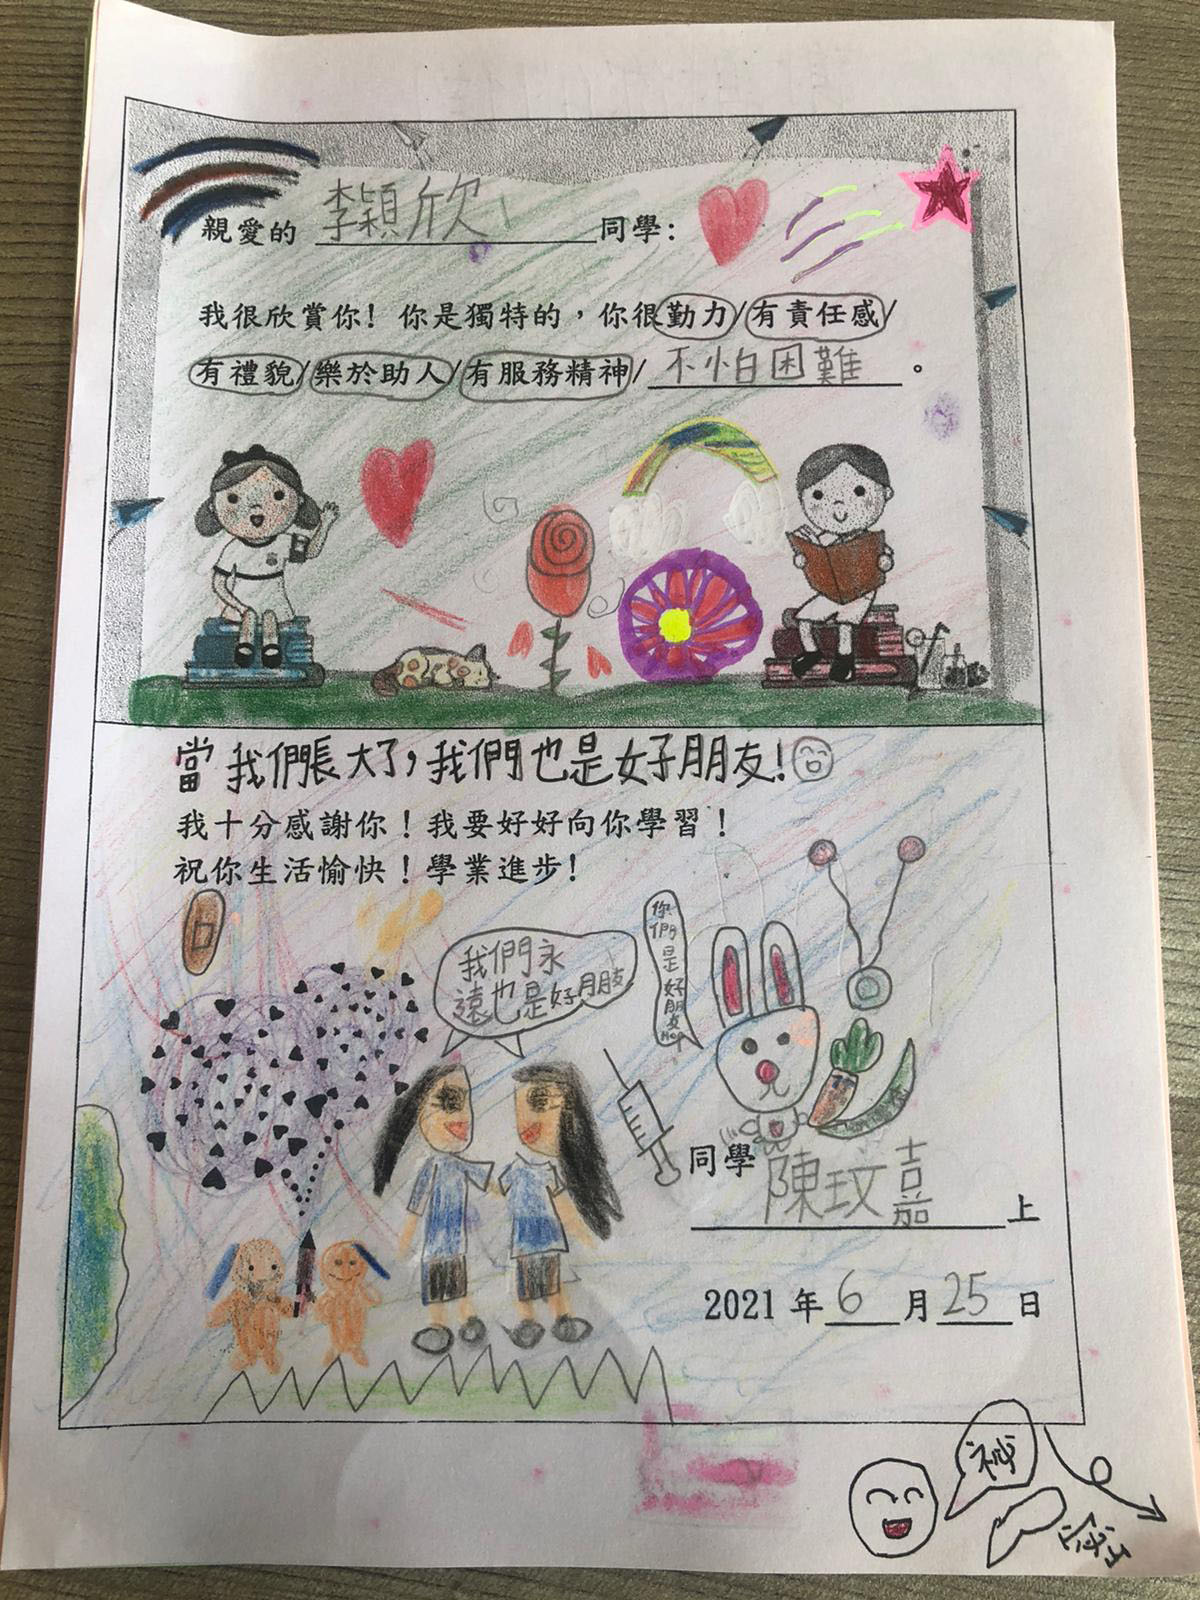 親愛的 李穎欣 同學:
我很欣賞你! 你是獨特的，你很勤力/有責任感/
有禮貌/樂於助人/有服務精神/ 不怕困難 。
當我們長大了,我們也是好朋友!
我十分感謝你！我要好好向你學習！
祝你生活愉快！學業進步!
我們永
遠也是好朋友
你們是好朋友
同學 陳玟嘉 上
2021 年 6 月 25 日
祕
密